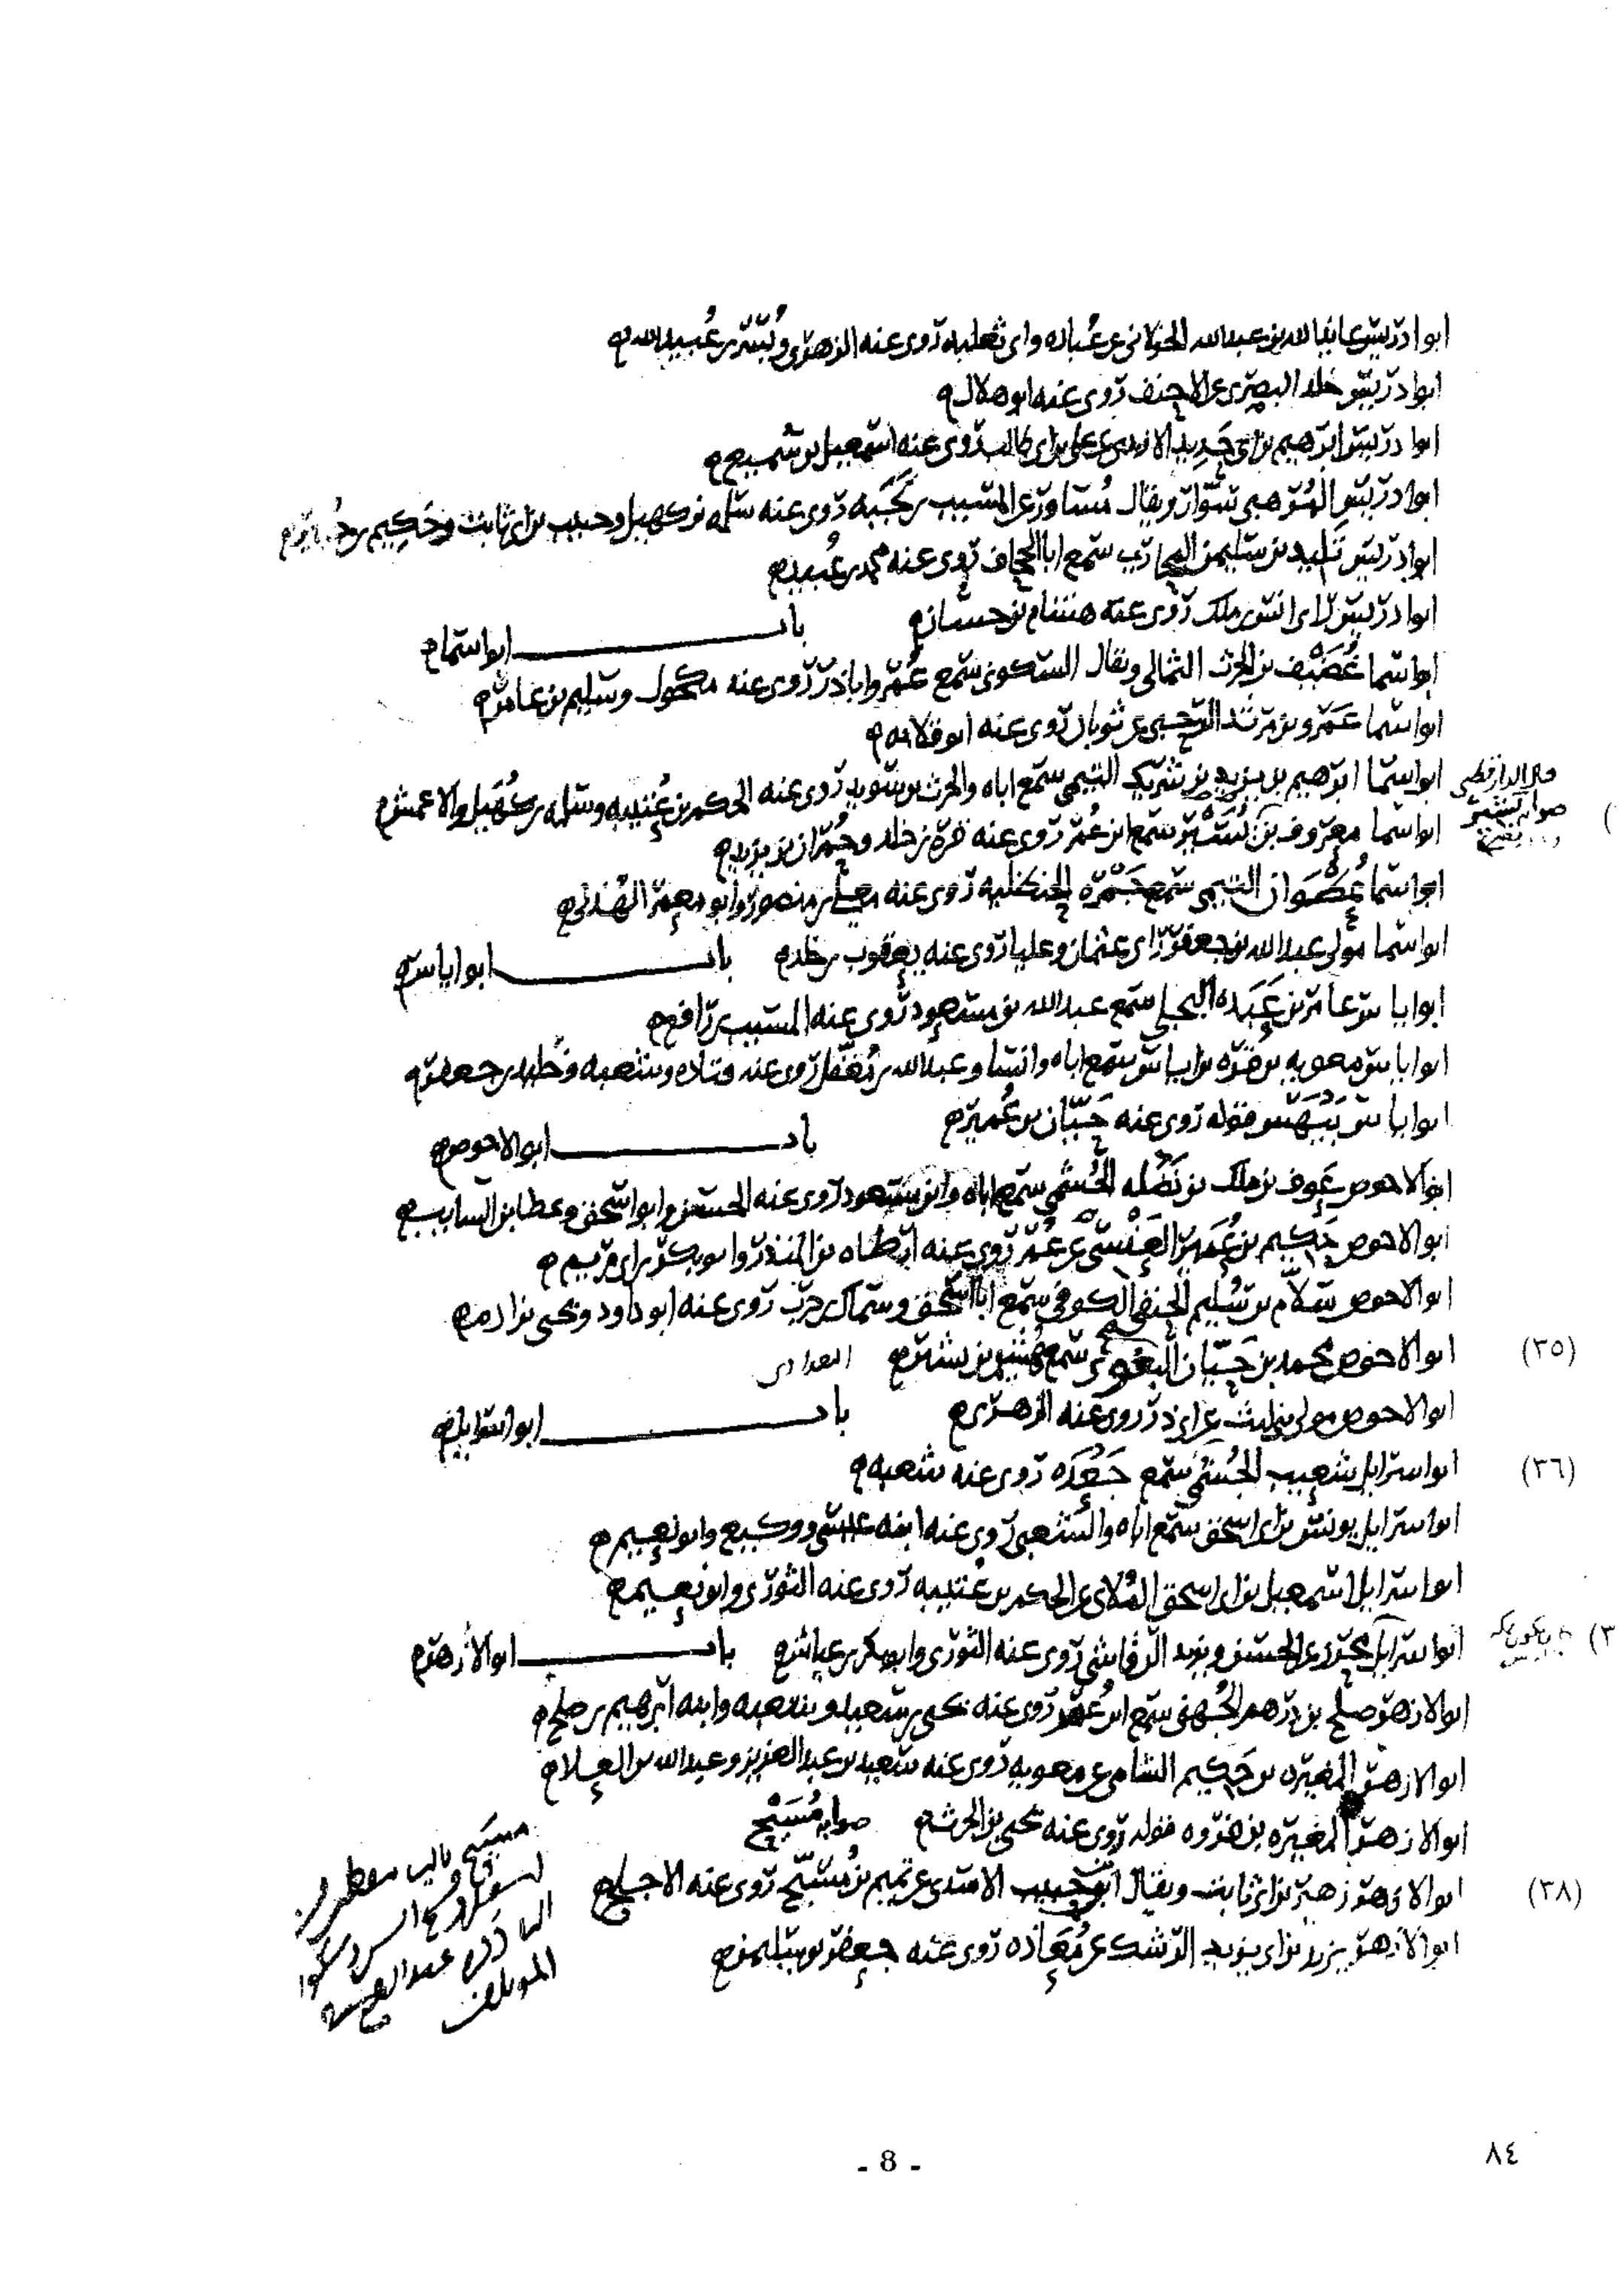 ابو ادريس عايذ الله بن عبد الله الخولاني عن عُباده وابي ثعلبه روى عنه الزهري وبُسر بن عُبيد الله
ابو ادريس خلد البصري عن الاحنف روى عنه ابو هلال
ابو ادريس ابرهيم بن ابي حَدِيد الاودي عن علي بن ابي طالب روى عنه اسمعيل بن سُميع
ابو ادريس المُرهبي سَوّار ويقال مُساور عن المسيب بن نَجَبَه روى عنه سلمه بن كهيل وحبيب بن ابي ثابت وحَكِيم بن جُبير
ابو ادريس تَلِيد بن سليمن المحاربي سمع ابا الجحاف روى عنه محمد بن عُبيد
ابو ادريس راى انس بن ملك روى عنه هشام بن حسان باب ابو اسما
ابو اسما غُضَيْف بن الحرث الثمالي ويقال السكوني سمع عُمر وابا ذر روى عنه مكحول وسليم بن عامر
ابو اسما عَمرو بن مرثد الرحبي عن ثوبان روى عنه ابو قلابه
ابو اسما ابرهيم بن يزيد بن شريك التيمي سمع اباه والحرث بن سويد روى عنه الحكم بن عُتيبه وسلمه بن كُهَيل والاعمش
قال الدارقطني
صوابه
ابو اسما معروف بن سمع ابن عُمر روى عنه قره بن خلد وحُمران بن يزيد
ابو اسما عُكْوَان التيمي سمع الحنظليه روى عنه معلى بن منصور وابو معمر الهُذلي
ابو اسما مولى عبد الله بن جعفر راى عثمان وعليا روى عنه يعقوب بن خلد باب ابو اياس
ابو اياس عامر بن عَبَده البجلي سمع عبد الله بن مسعود روى عنه المسيب بن رافع
ابو اياس معويه بن قُرّه بن اياس سمع اباه وانسا وعبد الله بن مُغَفّل روى عنه قتاده وشعبه وخُليد بن جعفر
ابو اياس بَيْهَس قوله روى عنه حَيّان بن عُمير باب ابو الاحوص
ابو الاحوص عَوف بن ملك بن نَضْله الجُشمي سمع اباه وابن مسعود روى عنه الحسن وابو اسحق وعطا بن السايب
ابو الاحوص حَكِيم بن عُمَير العَنْسي عن عُمر روى عنه ارطاه بن المنذر وابو بكر بن ابي مريم
ابو الاحوص سَلّام بن سُليم الحنفي الكوفي سمع ابا اسحق وسماك بن حرب روى عنه ابو داود ويحيى بن ادم
(٣٥) ابو الاحوص محمد بن حَيّان البغوي سمع هُشيم بن بشير البغدادي
ابو الاحوص مولى بني ليث عن ابي ذر روى عنه الزهري باب ابو اسرايل
(٣٦) ابو اسرايل شعيب الجُشمي سمع جَعْدَه روى عنه شعبه
ابو اسرايل يونس بن ابي اسحق سمع اباه والشعبي روى عنه ابنه عيسى ووكيع وابو نُعيم
ابو اسرايل اسمعيل بن ابي اسحق المُلاي عن الحكم بن عُتيبه روى عنه الثوري وابو نُعيم
ابو اسرايل عن الحسن ويزيد الرقاشي روى عنه الثوري وابو بكر بن عياش باب ابو الازهر
ابو الازهر صلح بن درهم الجُهني سمع ابن عُمر روى عنه يحيى بن سعيد وشعبه وابنه ابرهيم بن صلح
ابو الازهر المغيره بن حَكِيم الشامي عن معويه روى عنه سعيد بن عبد العزيز وعبد الله بن العلا
ابو الازهر المغيره بن فروه قوله روى عنه يحيى بن الحرث صوابه مُسَيْح
(٣٨) ابو الازهر زهير بن ابي ثابت ويقال ابو حبيب الاسدي عن تميم بن مُسَيّح روى عنه الاجلح
ابو الازهر يزيد بن ابي يزيد الرشك عن مُعَاذه روى عنه جعفر بن سليمن
٨٤
- 8 -